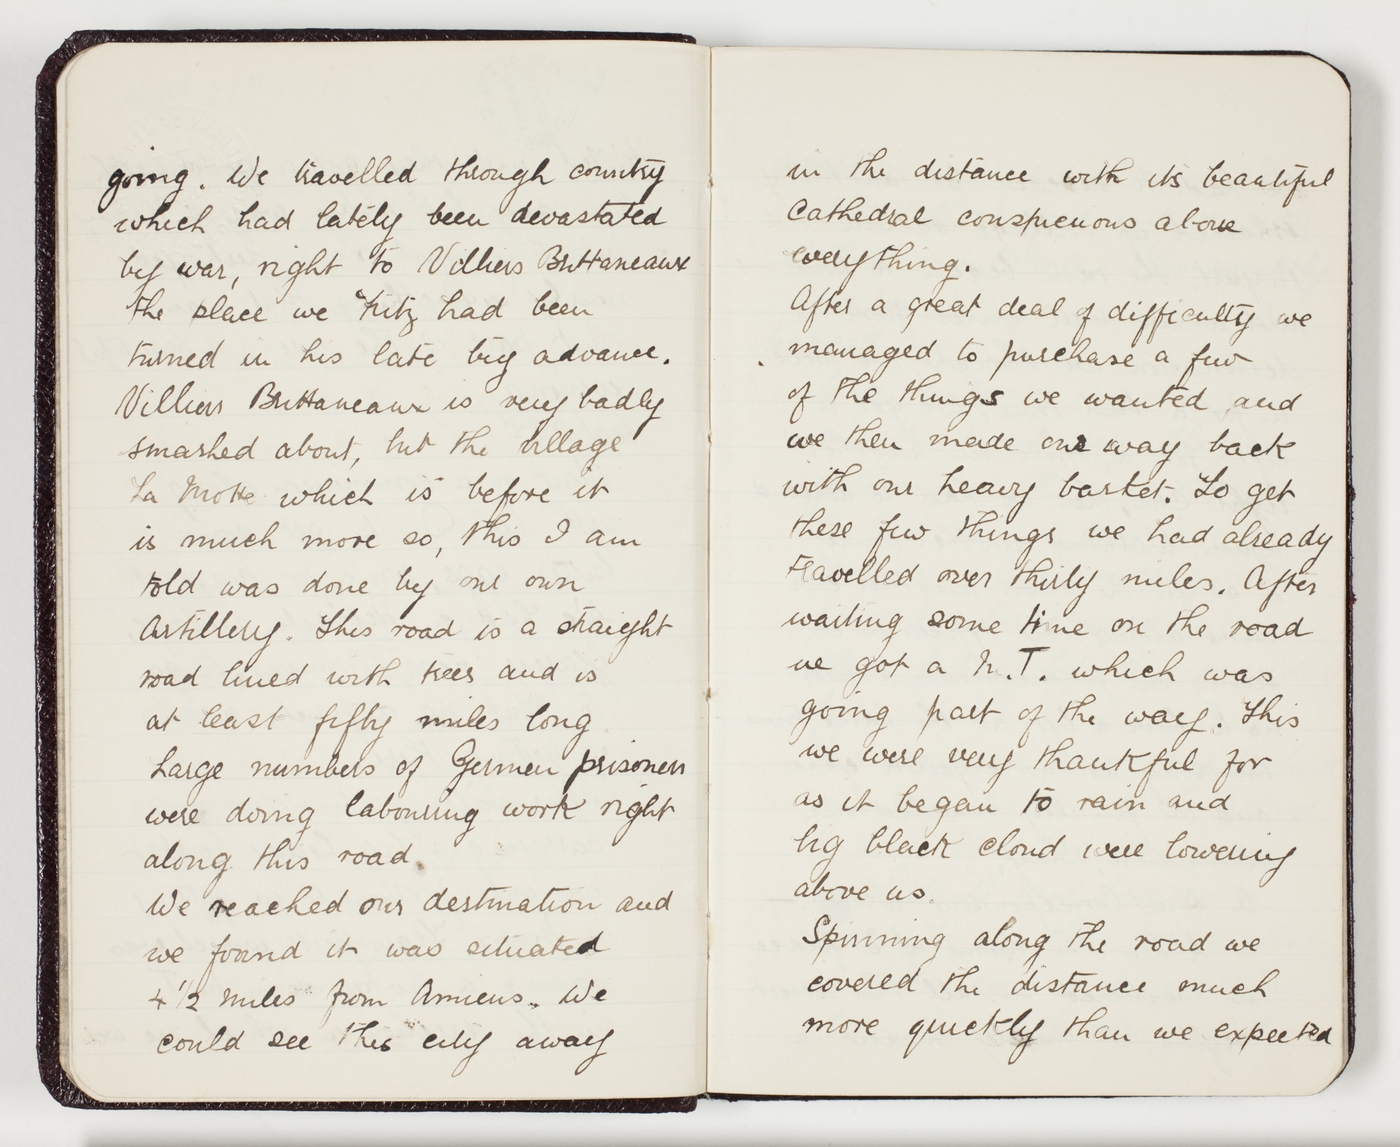 going. We travelled through country
which had lately been devastated
by war, right to Villiers Brittaneaux
the place we "Fritz had been
turned in his late big advance.
Villiers Brittaneaux is very badly
smashed about, but the village
La Motte which is before it
is much more so, this I am
told was done by our own
Artillery. This road is a straight
road lined with trees and is
at least fifty miles long
Large numbers of German prisoners
were doing labouring work right
along this road.
We reached our destination and
we found it was situated
4 1/2 miles from Amiens. We
could see this city away
in the distance with its beautiful
Cathedral conspicuous above
everything.
After a great deal of difficulty we
managed to purchase a few
of the things we wanted and
we then made our way back
with our heavy basket. To get
these few things we had already
travelled over thirty miles. After
waiting some time on the road
we got a M.T. which was
going part of the way. This
we were very thankful for
as it began to rain and
big black cloud were lowering
above us.
Spinning along the road we
covered the distance much
more quickly than we expected